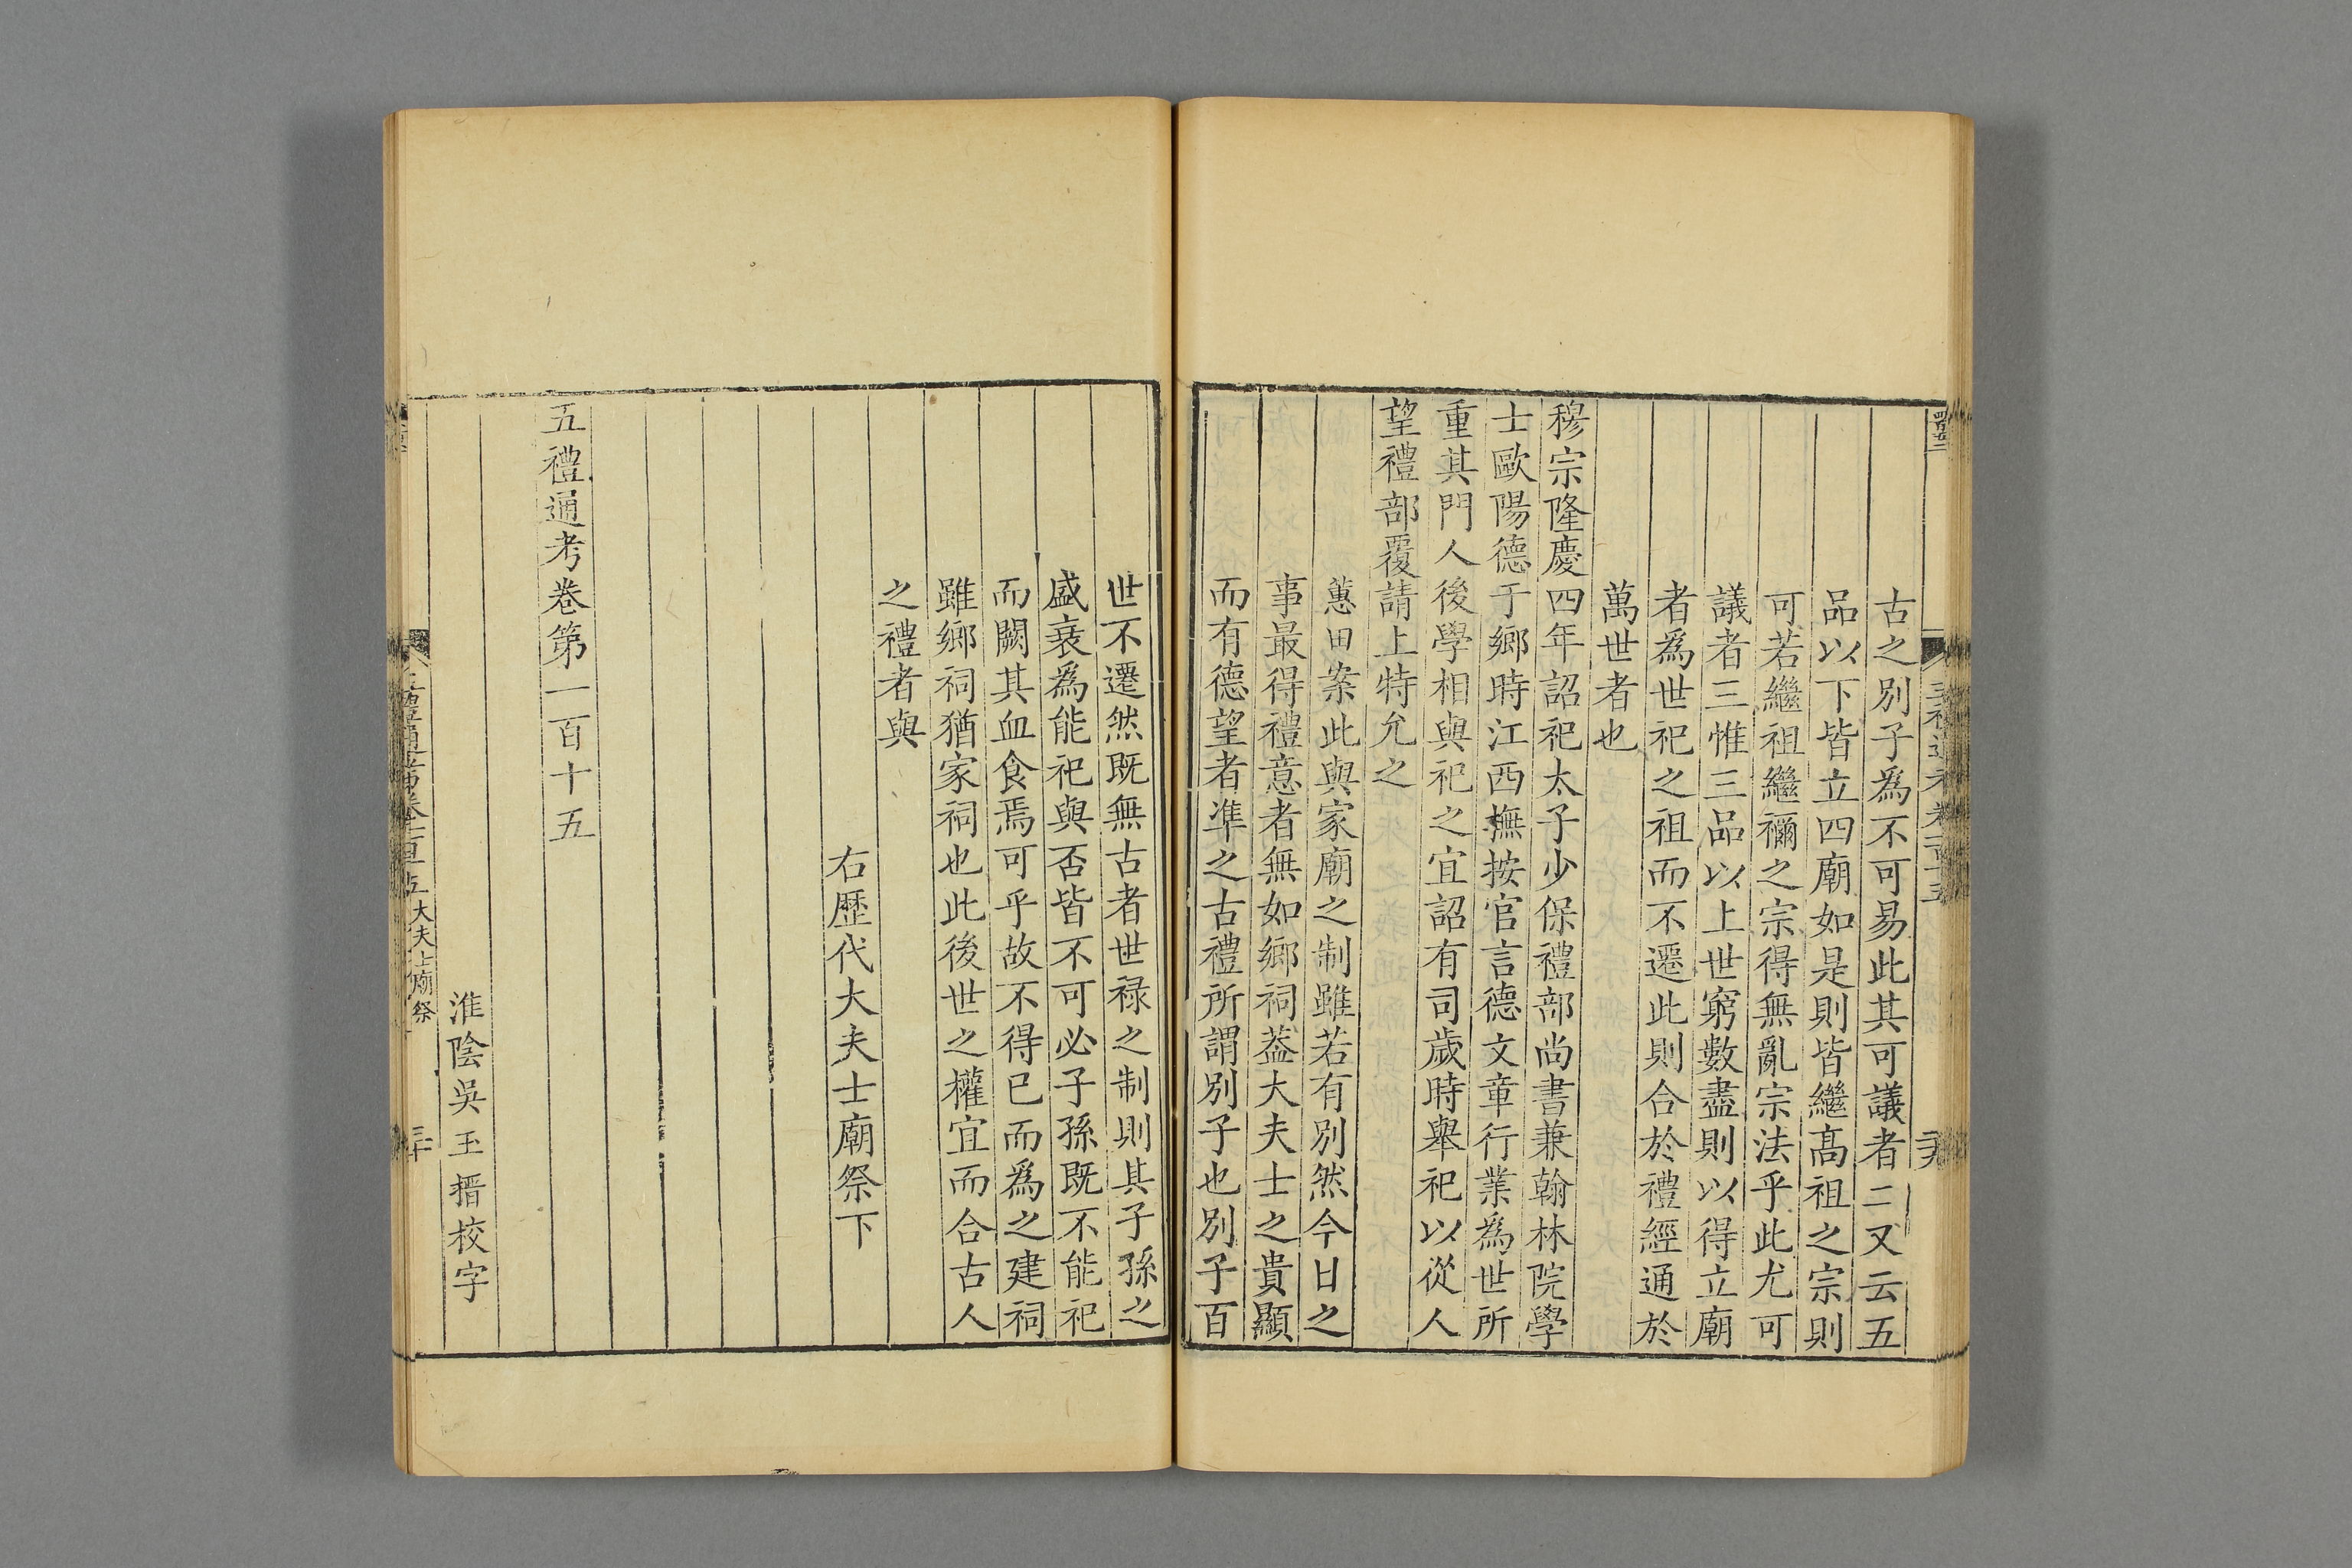 古之別子爲不可易此其可議者二又云五
品以下皆立四廟如是則皆繼高祖之宗則
可若繼祖繼禰之宗得無亂宗法乎此尤可
議者三惟三品以上世窮數盡則以得立廟
者爲世祀之祖而不遷此則合於禮經通於
萬世者也
穆宗隆慶四年詔祀太子少保禮部尚書兼翰林院學
士歐陽德于鄉時江西撫按官言德文章行業爲世所
重其門人後學相與祀之宜詔有司歲時舉祀以從人
望禮部覆請上特允之
蕙田案此與家廟之制雖若有別然今日之
事最得禮意者無如鄉祠葢大夫士之貴顯
而有德望者準之古禮所謂別子也別子百
世不遷然既無古者世禄之制則其子孫之
盛衰爲能祀與否皆不可必子孫既不能祀
而闕其血食焉可乎故不得已而爲之建祠
雖鄉祠猶家祠也此後世之權宜而合古人
之禮者與
右歷代大夫士廟祭下
五禮通考卷第一百十五
淮陰吳玉搢校字
大夫士廟祭
三十